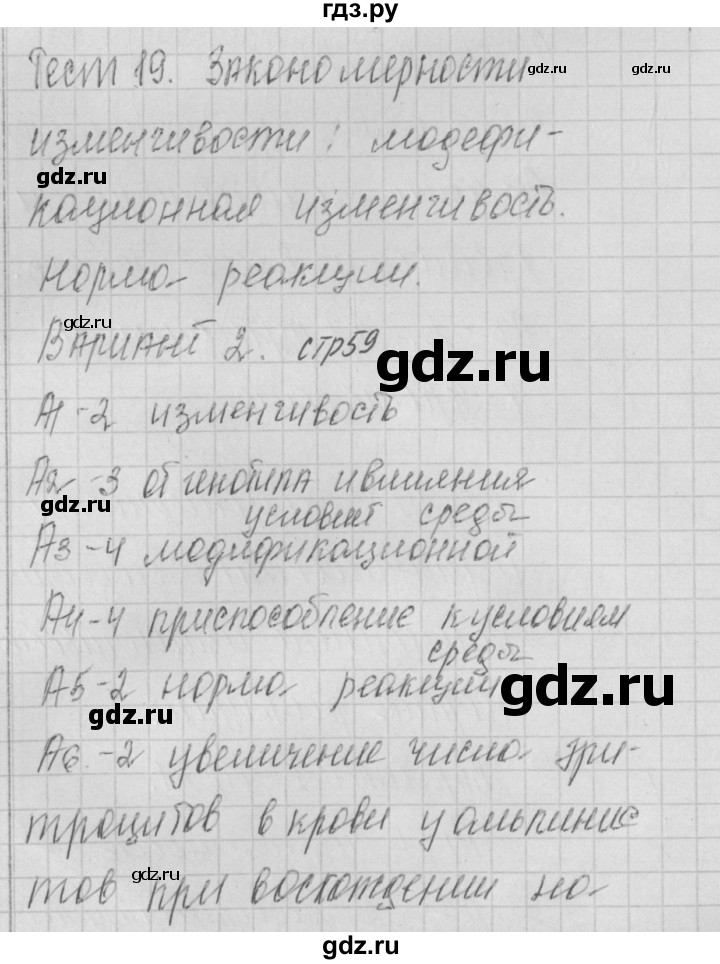 гдз.ру
Тест 19. Закономерности
gdz.ru gdz.ru
изменчивости: модефи-
gdz.ru
кационная изменчивость.
Норма реакции.
gdz.ru
Вариант 2. стр59
gdz.ru
А1-2 изменчивость
А2-3 от генотипа и влияния
gdz.ru
условий среды
А3-4 модификационной
А4-4 приспособление к условиям
среды
А5-2 норма реакции
gdz.ru
gdz.ru
А6.-2 увеличение числа эри-
троцитов в крови у альпинис
gdz.ru
тов при восхождении на-
gdz.ru